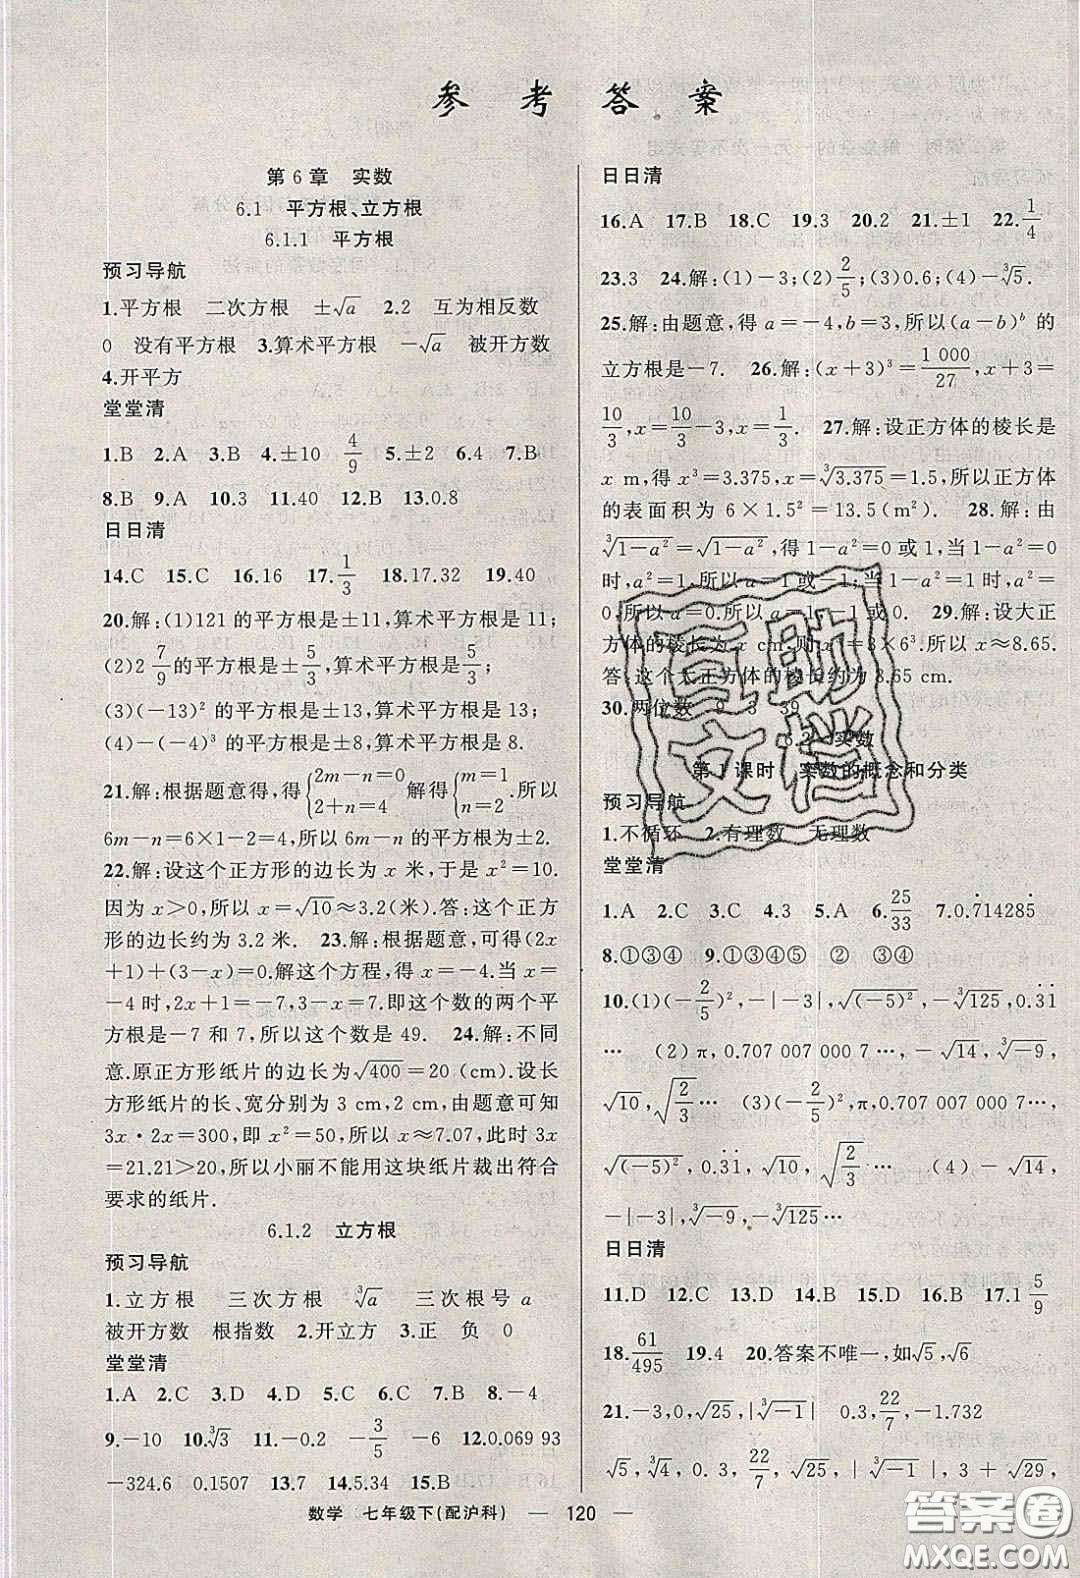 参考答案
第6章 实数
6.1 平方根、立方根
6.1.1 平方根
预习导航
1.平方根 二次方根 ±√a 2.2 互为相反数
0 没有平方根 3.算术平方根 -√a 被开方数
4.开平方
堂堂清
1.B 2.A 3.B 4.±10 4/9 5.±2 6.4 7.B
8.B 9.A 10.3 11.40 12.B 13.0.8
日日清
14.C 15.C 16.16 17.1/3 18.17.32 19.40
20.解:(1)121的平方根是±11,算术平方根是11;
(2)2 7/9的平方根是±5/3,算术平方根是5/3;
(3)(-13)²的平方根是±13,算术平方根是13;
(4)-(-4)³的平方根是±8,算术平方根是8.
21.解:根据题意得:{2m-n=0 2+n=4,解得{m=1 n=2,所以
6m-n=6×1-2=4,所以6m-n的平方根是±2.
22.解:设这个正方形的边长为x米,于是x²=10.
因为x>0,所以x=√10≈3.2(米).答:这个正方
形的边长约为3.2米. 23.解:根据题意,可得(2x
+1)+(3-x)=0.解这个方程,得x=-4.当x=
-4时,2x+1=-7,3-x=7.即这个数的两个平
方根是-7和7,所以这个数是49. 24.解:不同
意.原正方形纸片的边长为√400=20(cm).设长
方形纸片的长、宽分别为3 cm,2 cm,由题意可知
3x·2x=300,即x²=50,所以x≈7.07,此时3x
=21.21>20,所以小丽不能用这块纸片裁出符合
要求的纸片.
6.1.2 立方根
预习导航
1.立方根 三次方根 ³√a 三次根号a
被开方数 根指数 2.开立方 3.正 负 0
堂堂清
1.A 2.C 3.D 4.D 5.C 6.C 7.B 8.-4
9.-10 10.³√3 11.-0.2 -3/5 -6 12.0.069 93
-324.6 0.1507 13.7 14.5.34 15.B
日日清
16.A 17.B 18.C 19.3 20.2 21.±1 22.1/4
23.3 24.解:(1)-3;(2)2/5;(3)0.6;(4)-³√5.
25.解:由题意,得a=-4,b=3,所以(a-b)ᵇ的
立方根是-7. 26.解:(x+3)³=1 000/27,x+3=
10/3,x=10/3-3,x=1/3. 27.解:设正方体的棱长是
x m,得x³=3.375,x=³√3.375=1.5,所以正方体
的表面积为6×1.5²=13.5(m²). 28.解:由
³√1-a²=√1-a²,得1-a²=0或1,当1-a²=0
时,a²=1,所以a=1或-1;当1-a²=1时,a²=
0,所以a=0.所以a=1、-1或0. 29.解:设大正
方体的棱长为x cm,则x³=3×6³.所以x≈8.65.
答:这个大正方体的棱长约为8.65 cm.
30.两位数 9 3 39
6.2 实数
第1课时 实数的概念和分类
预习导航
1.不循环 2.有理数 无理数
堂堂清
1.A 2.C 3.C 4.3 5.A 6.25/33 7.0.7̇14285̇
8.①③④ 9.①③④⑤ ② ③④
10.(1)(-2/5)²,-|-3|,√(-5)²,-³√125,0.3̇1̇
… (2)π,0.707 007 000 7…,-√14,³√-9,
√10,√2/3… (3)(-2/5)²,π,0.707 007 000 7…,
√(-5)²,0.3̇1̇,√10,√2/3… (4)-√14,
-|-3|,³√-9,-³√125…
日日清
11.D 12.C 13.D 14.B 15.C 16.B 17.1 5/9
18.61/495 19.4 20.答案不唯一,如√5,√6
21.-3,0,√25,|³√-1| 0.3,22/7,-1.732
√5,³√4,√8 0.3,22/7,√25,|³√-1|,3+√29,
数学 七年级下(配沪科) — 120 —
互助文档
答案圈
MXQE.COM